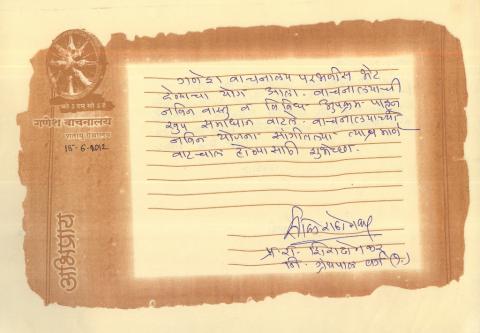 गणेश वाचनालय
शताब्द ग्रंथालय
15-6-2012
अभिप्राय
गणेश वाचनालय परभणीस भेट
देण्याचा योग आला. वाचनालयाची
नविन वास्तु व विविध उपक्रम पाहून
खुप समाधान वाटले. वाचनालयाच्या
नविन योजना सांगीतल्या त्याप्रमाणे
वाटचाल होण्यासाठी शुभेच्छा.
प्र.रा.
जि. ग्रंथपाल